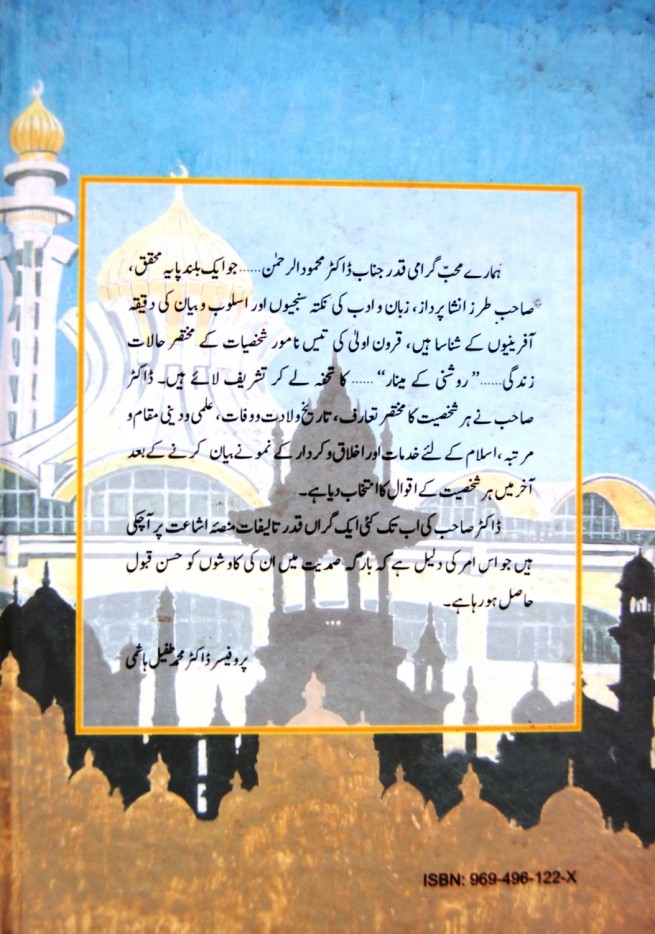 ہمارے محبّ گرامی قدر جناب ڈاکٹر محمود الرحمٰن...... جو ایک بلند پایہ محقق،
صاحبِ طرز انشا پرداز، زبان و ادب کی نکتہ سنجیوں اور اسلوب و بیان کی دقیقہ
آفرینیوں کے شناسا ہیں، قرون اولیٰ کی تیس نامور شخصیات کے مختصر حالات
زندگی......” روشنی کے مینار“ ...... کا تحفہ لے کر تشریف لائے ہیں۔ ڈاکٹر
صاحب نے ہر شخصیت کا مختصر تعارف، تاریخ ولادت و وفات، علمی و دینی مقام و
مرتبہ، اسلام کے لئے خدمات اور اخلاق و کردار کے نمونے بیان کرنے کے بعد
آخر میں ہر شخصیت کے اقوال کا انتخاب دیا ہے۔
ڈاکٹر صاحب کی اب تک کئی ایک گراں قدر تالیفات منصۂ اشاعت پر آچکی
ہیں جو اس امر کی دلیل ہے کہ بارگہ صمدیت میں ان کی کاوشوں کو حسن قبول
حاصل ہو رہا ہے۔
پروفیسر ڈاکٹر محمد طفیل ہاشمی
ISBN: 969-496-122-X